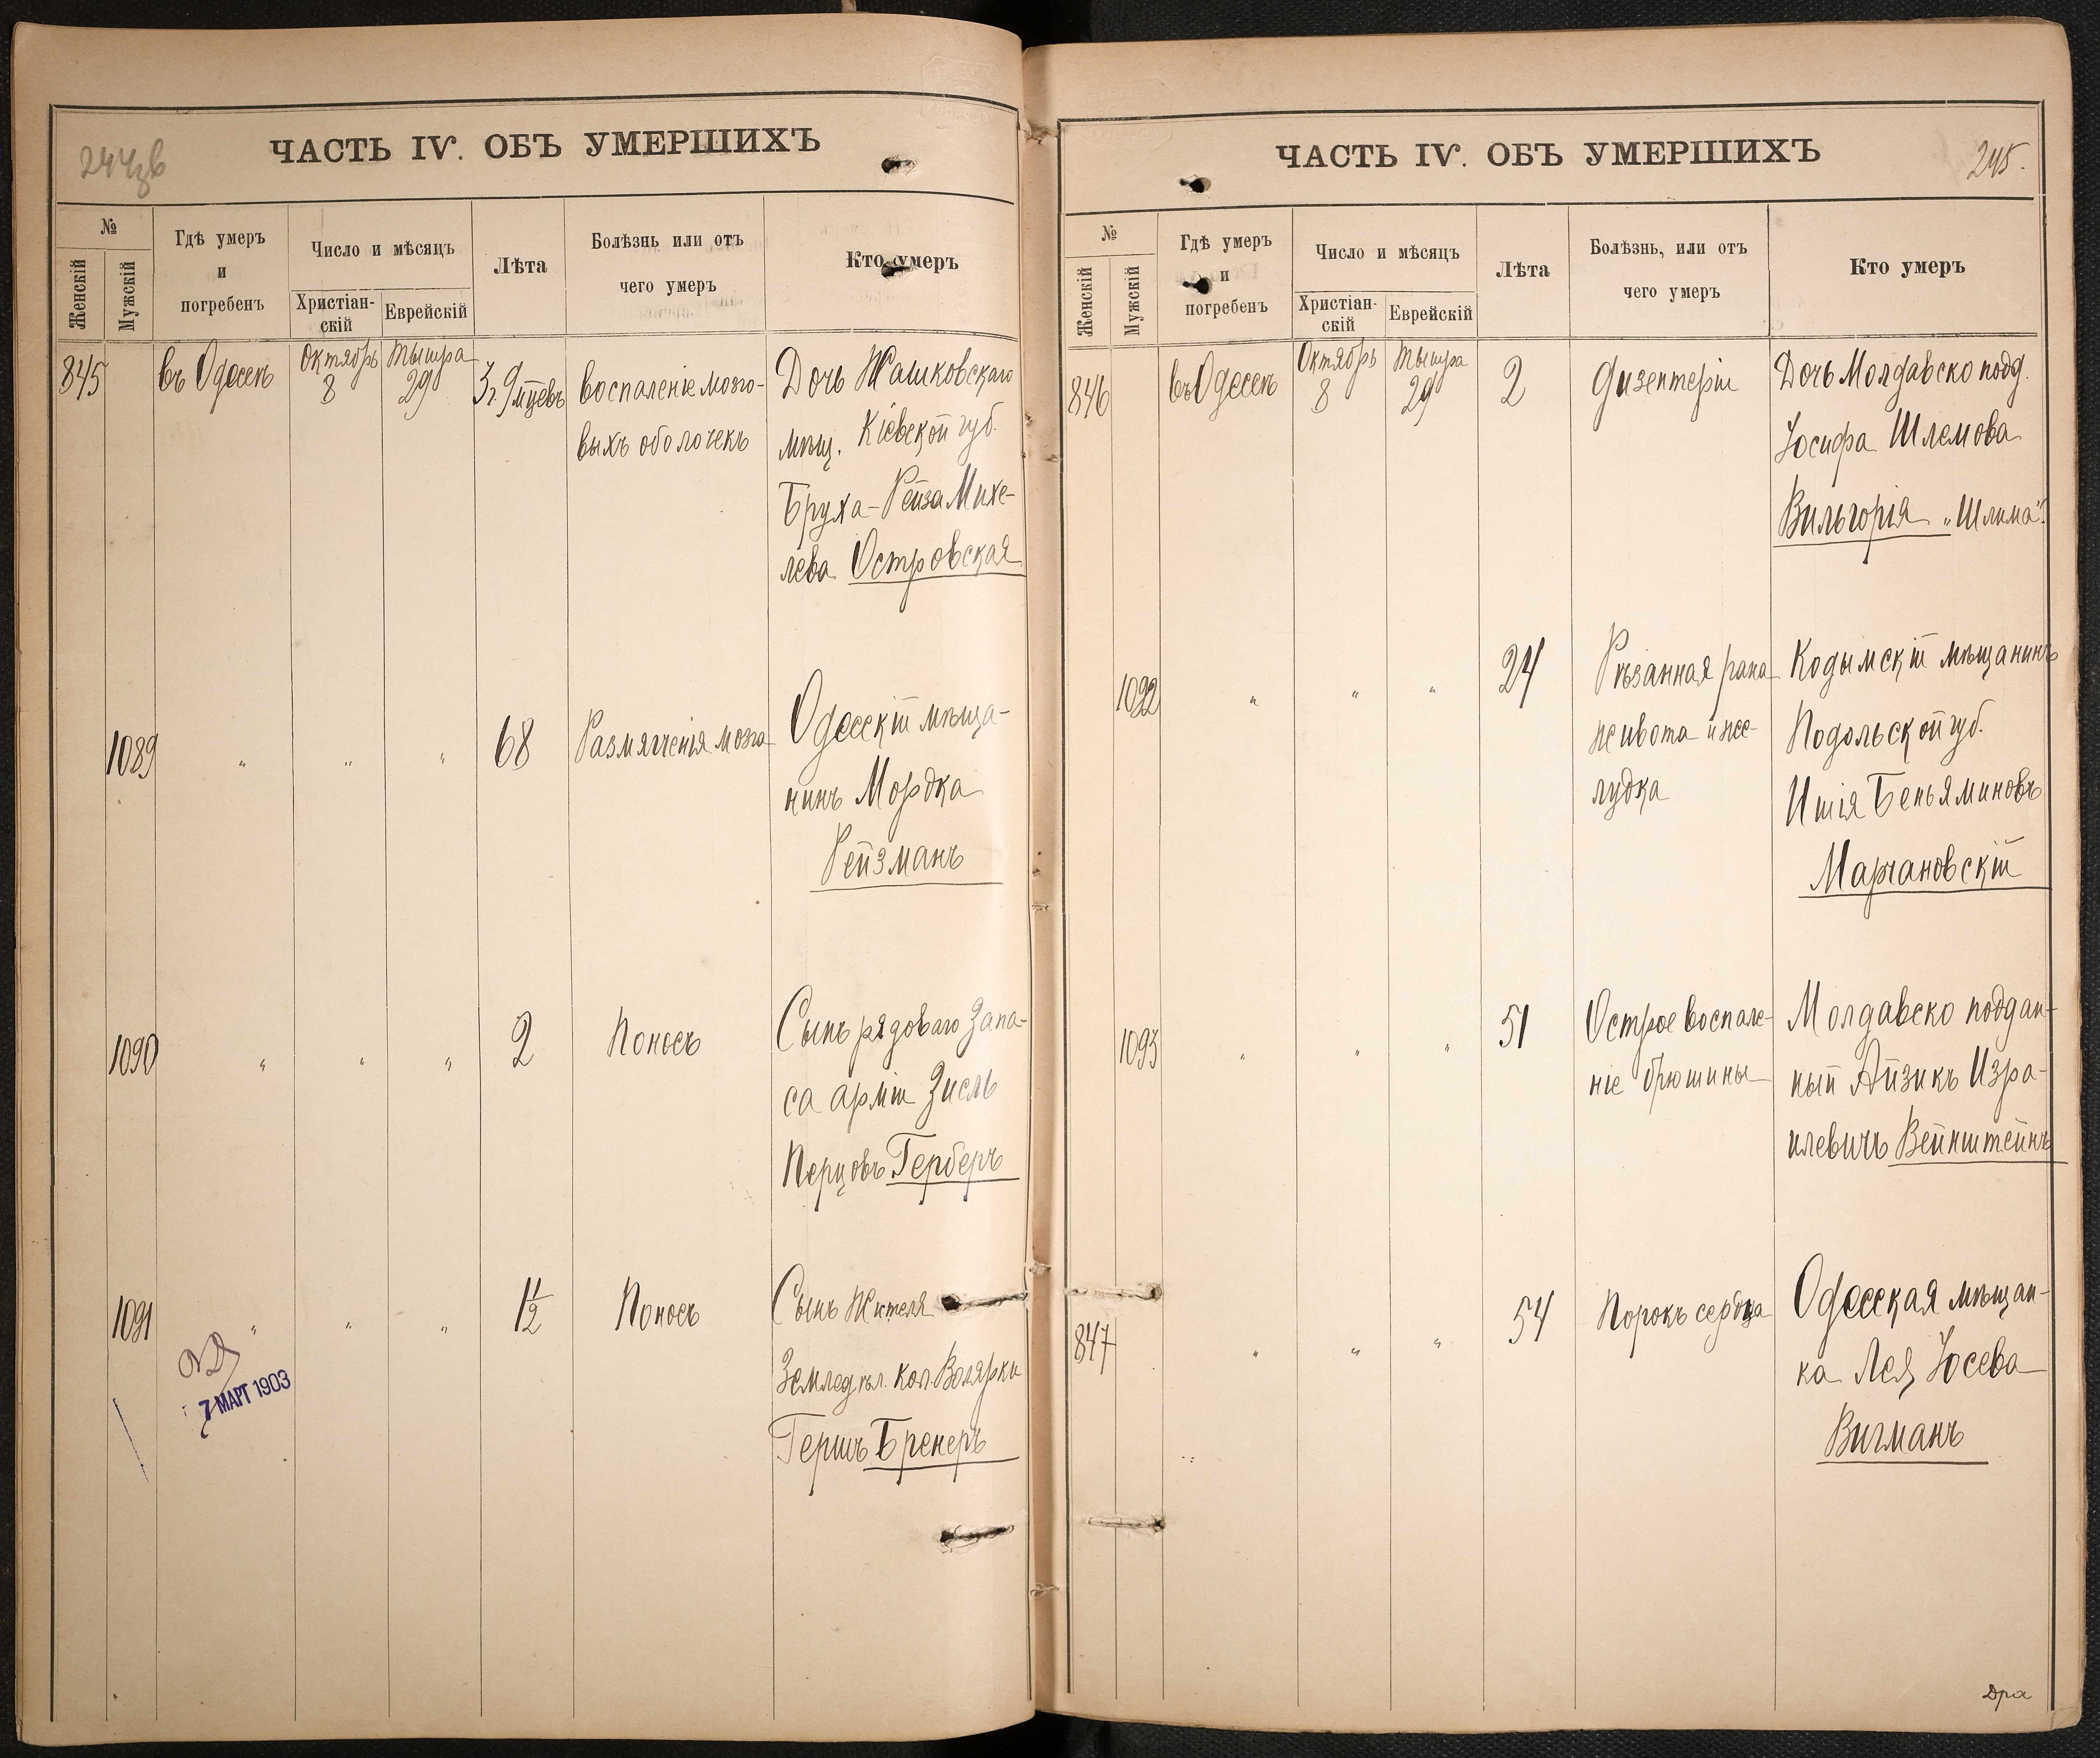 244 зв
ЧАСТЬ IV. ОБЪ УМЕРШИХЪ
№
Женскій
Мужскій
Гдѣ умеръ
и
погребенъ
Число и мѣсяцъ
Христіан-
скій
Еврейскій
Лѣта
Болѣзнь или отъ
чего умеръ
Кто умеръ
845
въ Одессѣ
Октябрь
8
Тышра
29
3 г. 9 мцевъ
Воспаленіе мозго-
выхъ оболочекъ
Дочь Жашковскаго
мѣщ. Кіевской губ.
Бруха-Рейза Михе-
лева Островская
1089
"
"
"
68
Размягченія мозга
Одесскій мѣща-
нинъ Мордка
Рейзманъ
1090
"
"
"
2
Поносъ
Сынъ рядоваго Запа-
са арміи Зисль
Перцовъ Герберъ
1091
"
"
"
1 1/2
Поносъ
Сынъ жителя
Земледѣл. кол. ВоляРки
Гершъ Бренеръ
7 МАРТ 1903
ЧАСТЬ IV. ОБЪ УМЕРШИХЪ
245.
№
Женскій
Мужскій
Гдѣ умеръ
и
погребенъ
Число и мѣсяцъ
Христіан-
скій
Еврейскій
Лѣта
Болѣзнь, или отъ
чего умеръ
Кто умеръ
846
въ Одессѣ
Октябрь
8
Тышра
29
2
Дизентеріи
Дочь Молдавско подд.
Іосифа Шлемова
Вильгорія „Шлима".
1092
"
"
"
24
Рѣзанная рана
живота и же-
лудка
Кодымскій мѣщанинъ
Подольской губ.
Ишія Беньяминовъ
Марчановскій
1093
"
"
"
51
Острое воспале-
ніе брюшины
Молдавско поддан-
ный Айзикъ Изра-
илевичъ Вейнштейнъ
847
"
"
"
54
Порокъ сердца
Одесская мѣщан-
ка Лея Іосева
Вигманъ
Дра